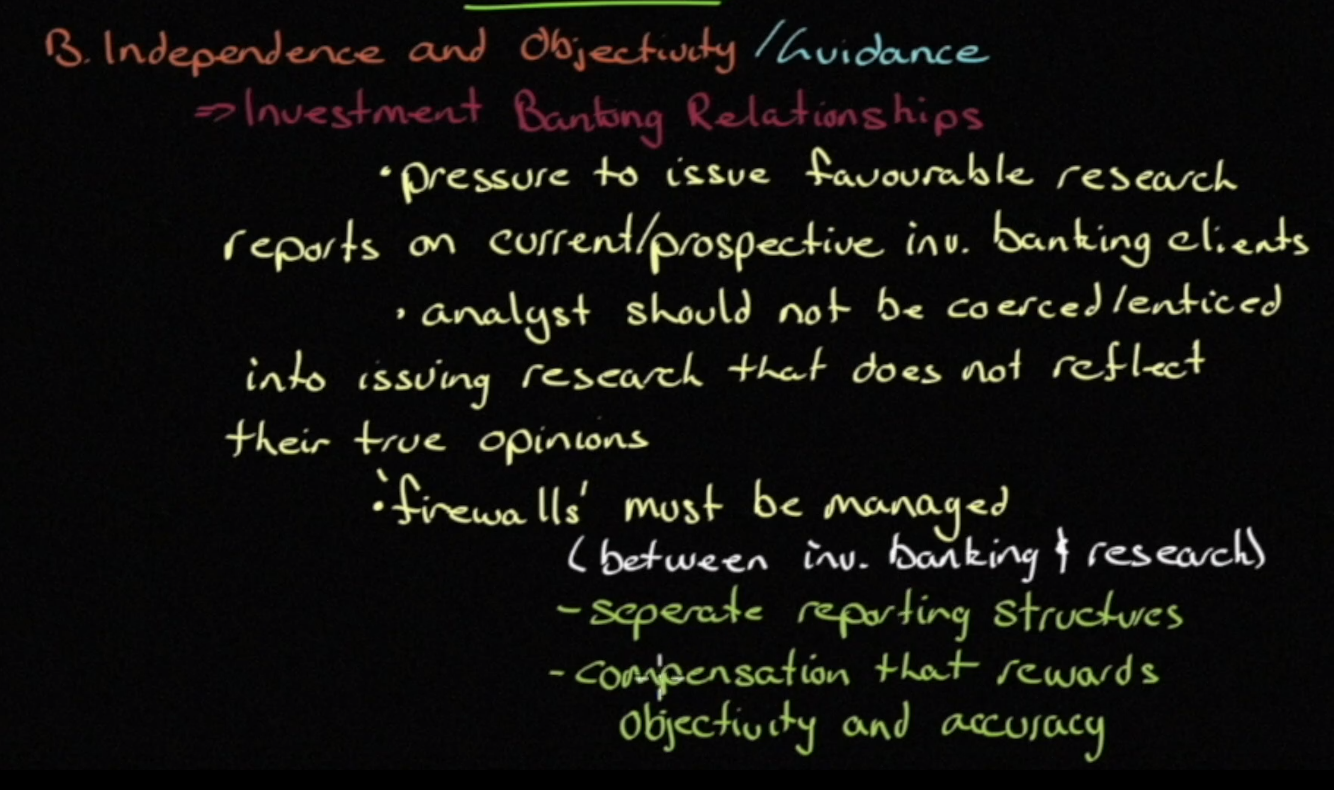 B. Independence and Objectivity / Guidance
⇒ Investment Banking Relationships
• pressure to issue favourable research
reports on current/prospective inv. banking clients
• analyst should not be coerced/enticed
into issuing research that does not reflect
their true opinions
• 'firewalls' must be managed
(between inv. banking & research)
- seperate reporting structures
- compensation that rewards
objectivity and accuracy